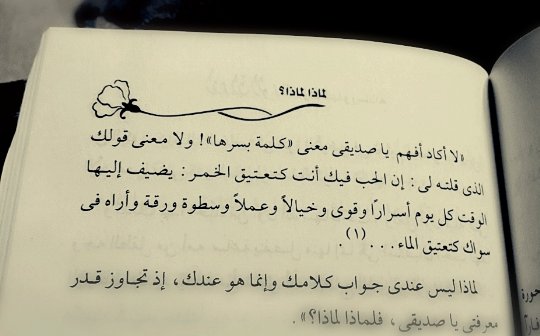 لماذا لماذا؟
«لا أكاد أفهم يا صديقى معنى «كلمة بسرها»! ولا معنى قولك
الذى قلته لى: إن الحب فيك أنت كتعتيق الخمر: يضيف إليها
الوقت كل يوم أسرارًا وقوى وخيالاً وعملاً وسطوة ورقة وأراه فى
سواك كتعتيق الماء...(١).
لماذا ليس عندى جواب كلامك وإنما هو عندك، إذ تجاوز قدر
معرفتى يا صديقى، فلماذا لماذا؟».